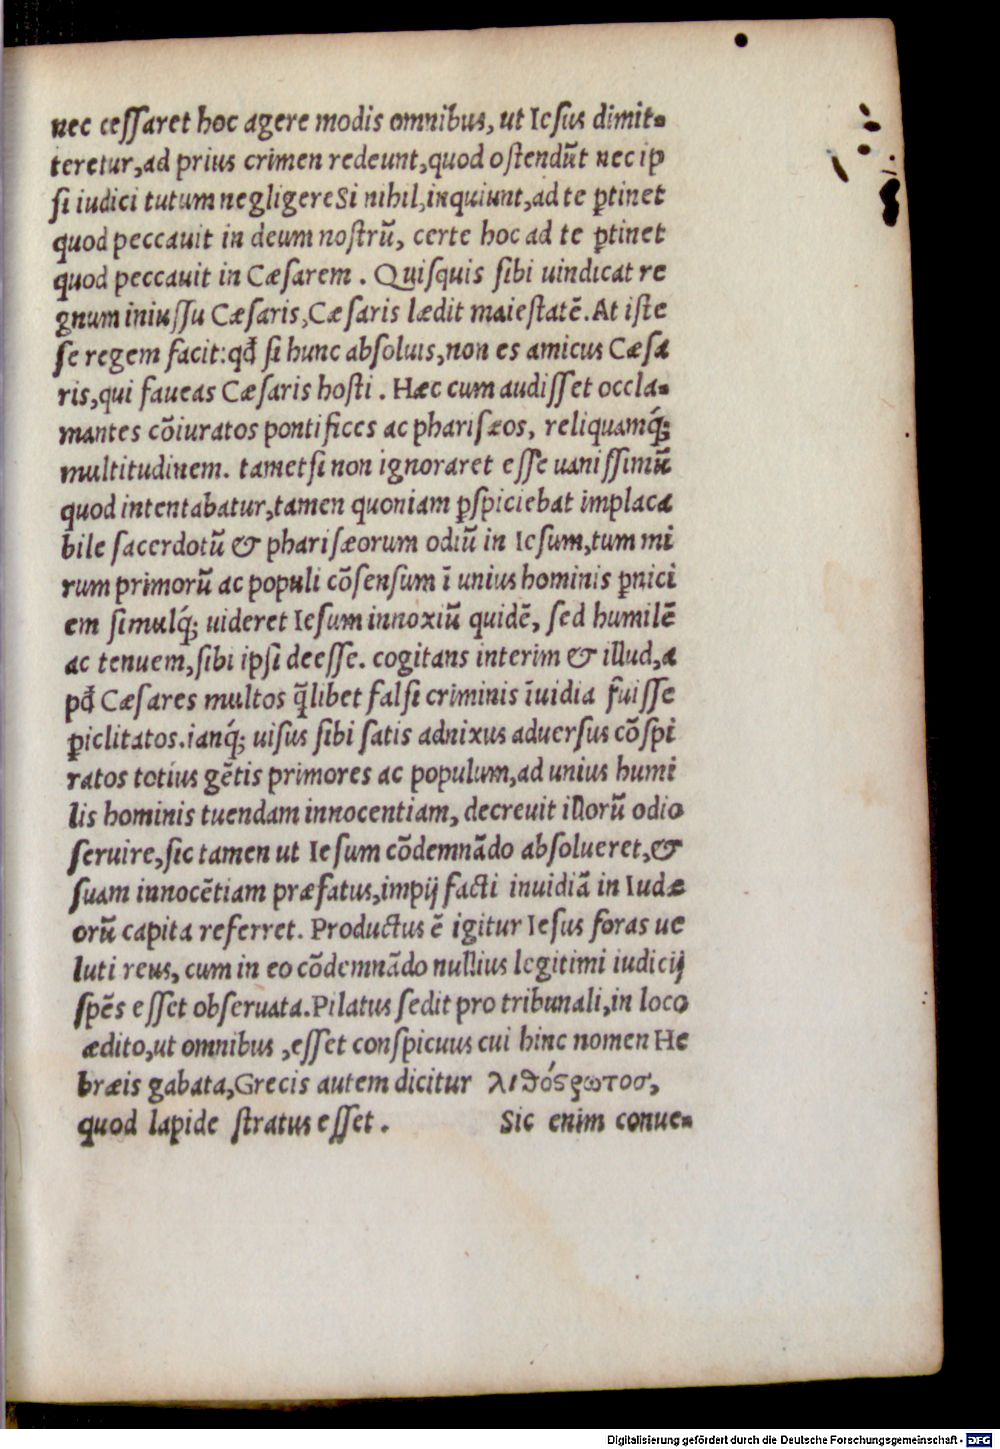 nec ceſſaret hoc agere modis omnibus, ut Ieſus dimit-
teretur, ad prius crimen redeunt, quod oſtendūt nec ip
ſi iudici tutum negligere Si nihil, inquiunt, ad te ꝑtinet
quod peccauit in deum noſtrū, certe hoc ad te ꝑtinet
quod peccauit in Cæſarem . Quiſquis ſibi uindicat re
gnum iniuſſu Cæſaris, Cæſaris lædit maieſtatē. At iſte
ſe regem facit: qđ ſi hunc abſoluis, non es amicus Cæſa
ris, qui faueas Cæſaris hoſti . Hæc cum audiſſet occla-
mantes cōiuratos pontifices ac phariſæos, reliquamq́;
multitudinem. tametſi non ignoraret eſſe uaniſſimū
quod intentabatur, tamen quoniam ꝑſpiciebat implaca
bile ſacerdotū & phariſæorum odiū in Ieſum, tum mi
rum primorū ac populi cōſenſum ī unius hominis ꝑnici
em ſimulq́; uideret Ieſum innoxiū quidē, ſed humilē
ac tenuem, ſibi ipſi deeſſe. cogitans interim & illud, a
pđ Cæſares multos q̄libet falſi criminis īuidia fuiſſe
ꝑiclitatos. ianq́; uiſus ſibi ſatis adnixus aduerſus cōſpi
ratos totius gētis primores ac populum, ad unius humi
lis hominis tuendam innocentiam, decreuit illorū odio
ſeruire, ſic tamen ut Ieſum cōdemnādo abſolueret, &
ſuam innocētiam præfatus, impij facti inuidiā in Iudæ
orū capita referret. Productus ē igitur Ieſus foras ue
luti reus, cum in eo cōdemnādo nullius legitimi iudicij
ſpēs eſſet obſeruata. Pilatus ſedit pro tribunali, in loco
ædito, ut omnibus , eſſet conſpicuus cui hinc nomen He
bræis gabata, Grecis autem dicitur λιθόςρωτοσ,
quod lapide ſtratus eſſet . Sic enim conue-
Digitalisierung gefördert durch die Deutsche Forschungsgemeinschaft - DFG